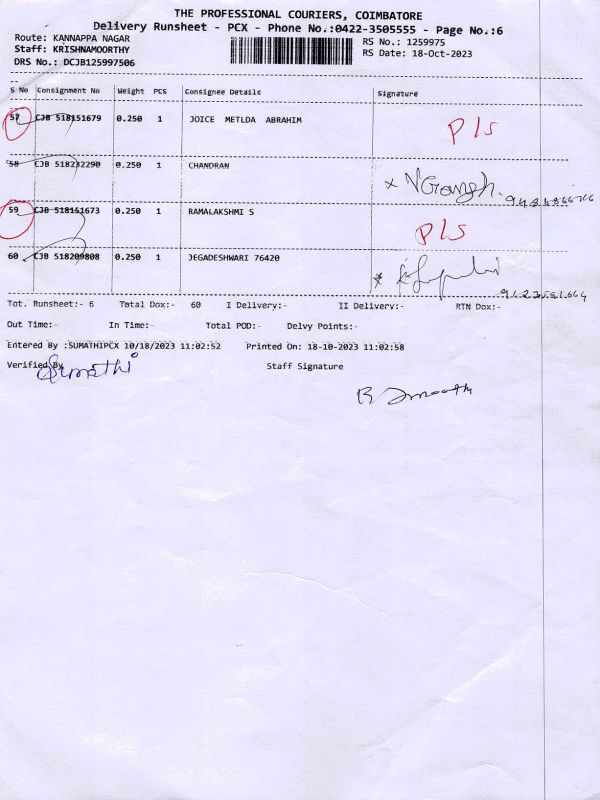 THE PROFESSIONAL COURIERS, COIMBATORE
Delivery Runsheet - PCX - Phone No.:0422-3505555 - Page No.:6
Route: KANNAPPA NAGAR RS No.: 1259975
Staff: KRISHNAMOORTHY RS Date: 18-Oct-2023
DRS No.: DCJB125997506
S No Consignment No Weight PCS Consignee Details Signature
57 CJB 518151679 0.250 1 JOICE METLDA ABRAHIM P/s
58 CJB 518232290 0.250 1 CHANDRAN
59 CJB 518151673 0.250 1 RAMALAKSHMI S P/s
60 CJB 518209808 0.250 1 JEGADESHWARI 76420
Tot. Runsheet:- 6 Total Dox:- 60 I Delivery:- II Delivery:- RTN Dox:-
Out Time:- In Time:- Total POD:- Delvy Points:-
Entered By :SUMATHIPCX 10/18/2023 11:02:52 Printed On: 18-10-2023 11:02:58
Verified By Sumathi Staff Signature